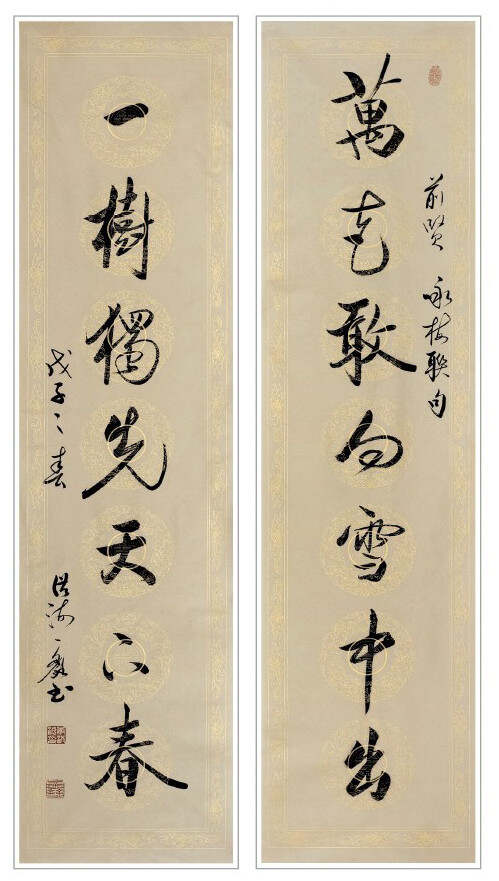 萬花敢向雪中出
前賢 詠梅聯句
一樹獨先天下春
戊子之春
書